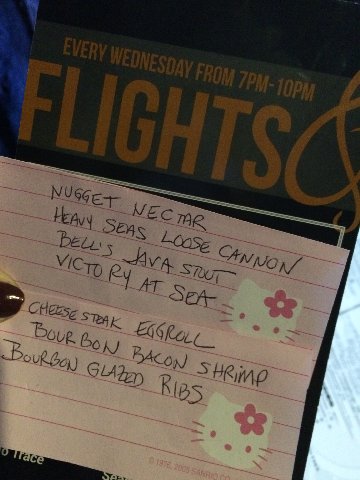 EVERY WEDNESDAY FROM 7PM-10PM
FLIGHTS &
NUGGET NECTAR
HEAVY SEAS LOOSE CANNON
BELL'S JAVA STOUT
VICTORY AT SEA
CHEESE STEAK EGGROLL
BOURBON BACON SHRIMP
BOURBON GLAZED RIBS
© 1976, 2005 SANRIO CO.
o Trace